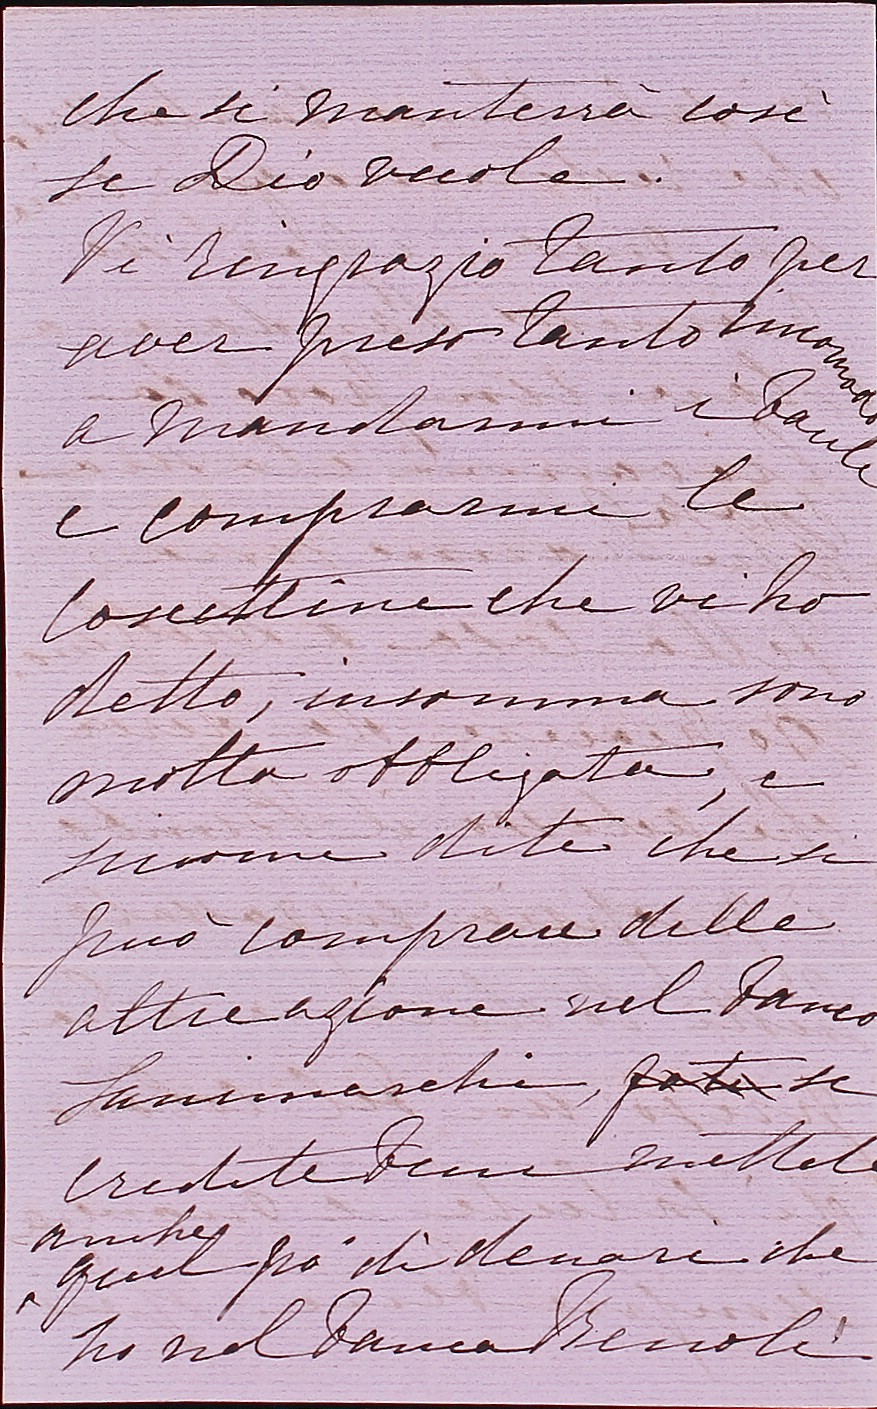 che si manterrà così
se Dio vuole.
Vi ringrazio tanto per
aver preso tanto incomodo
a mandarmi i baule
e comprarmi le
cosettine che vi ho
detto, insomma sono
molta obbligata, e
siccome dite che si
può comprare delle
altre azione nel banco
se
credete bene mettete
anche
quel pò di denari che
ho nel banca